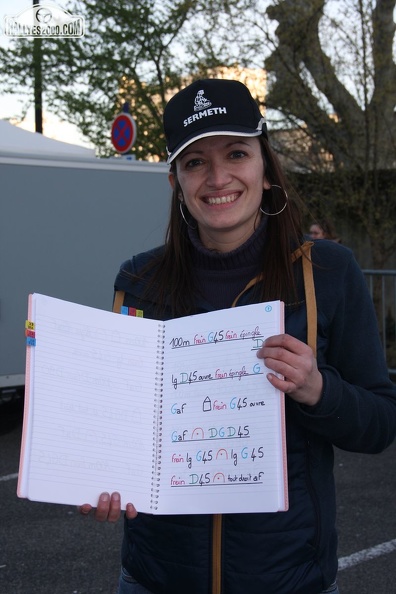 RALLYES2000.COM
SERMETH
1
100m frein G45 frein épingle
D
lg D45 ouvre frein épingle G
Gaf frein G45 ouvre
Gaf DGD45
frein lg G45 lg G45
frein D45 tout droit af